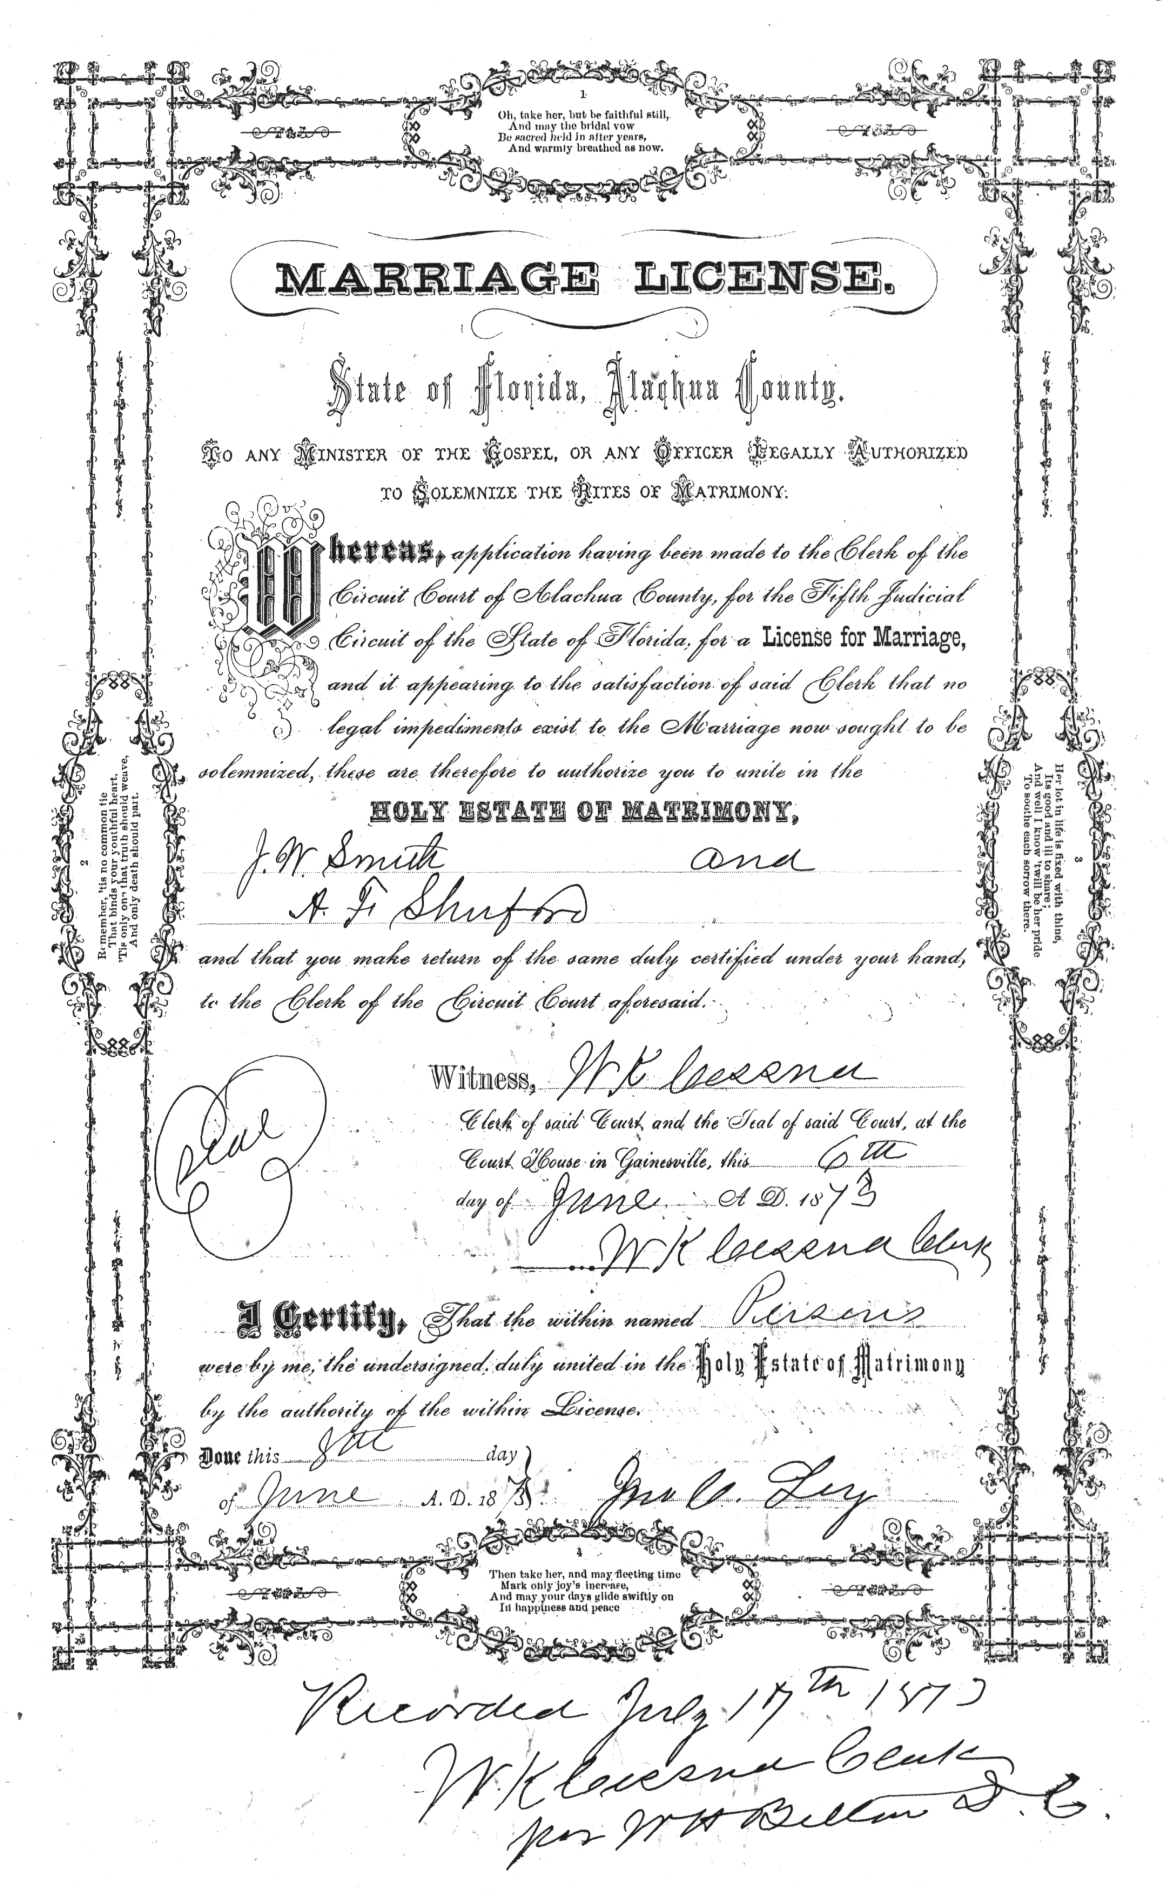 1
Oh, take her, but be faithful still,
And may the bridal vow
Be sacred held in after years,
And warmly breathed as now.
MARRIAGE LICENSE.
State of Florida, Alachua County.
TO ANY MINISTER OF THE GOSPEL, OR ANY OFFICER LEGALLY AUTHORIZED
TO SOLEMNIZE THE RITES OF MATRIMONY:
Whereas, application having been made to the Clerk of the
Circuit Court of Alachua County, for the Fifth Judicial
Circuit of the State of Florida, for a License for Marriage,
and it appearing to the satisfaction of said Clerk that no
legal impediments exist to the Marriage now sought to be
solemnized, these are therefore to authorize you to unite in the
HOLY ESTATE OF MATRIMONY,
J. W. Smith and
A. F. Shuford
and that you make return of the same duly certified under your hand,
to the Clerk of the Circuit Court aforesaid.
2
Remember, 'tis no common tie
That binds your youthful heart,
'Tis only one that truth should weave,
And only death should part.
3
Her lot in life is fixed with thine,
Its good and ill to share;
And well I know 'twill be her pride
To soothe each sorrow there.
Witness, W K Cessna
Clerk of said Court, and the Seal of said Court, at the
Court House in Gainesville, this 6th
day of June A D. 1873
W K Cessna Clerk
Seal
I Certify, That the within named Persons
were by me, the undersigned, duly united in the Holy Estate of Matrimony
by the authority of the within License.
Done this 8th day
of June A. D. 1873. Jno C. Ley
4
Then take her, and may fleeting time
Mark only joy's increase,
And may your days glide swiftly on
In happiness and peace
Recorded July 17th 1873
W. K Cessna Clerk
per W H Belton D. C.